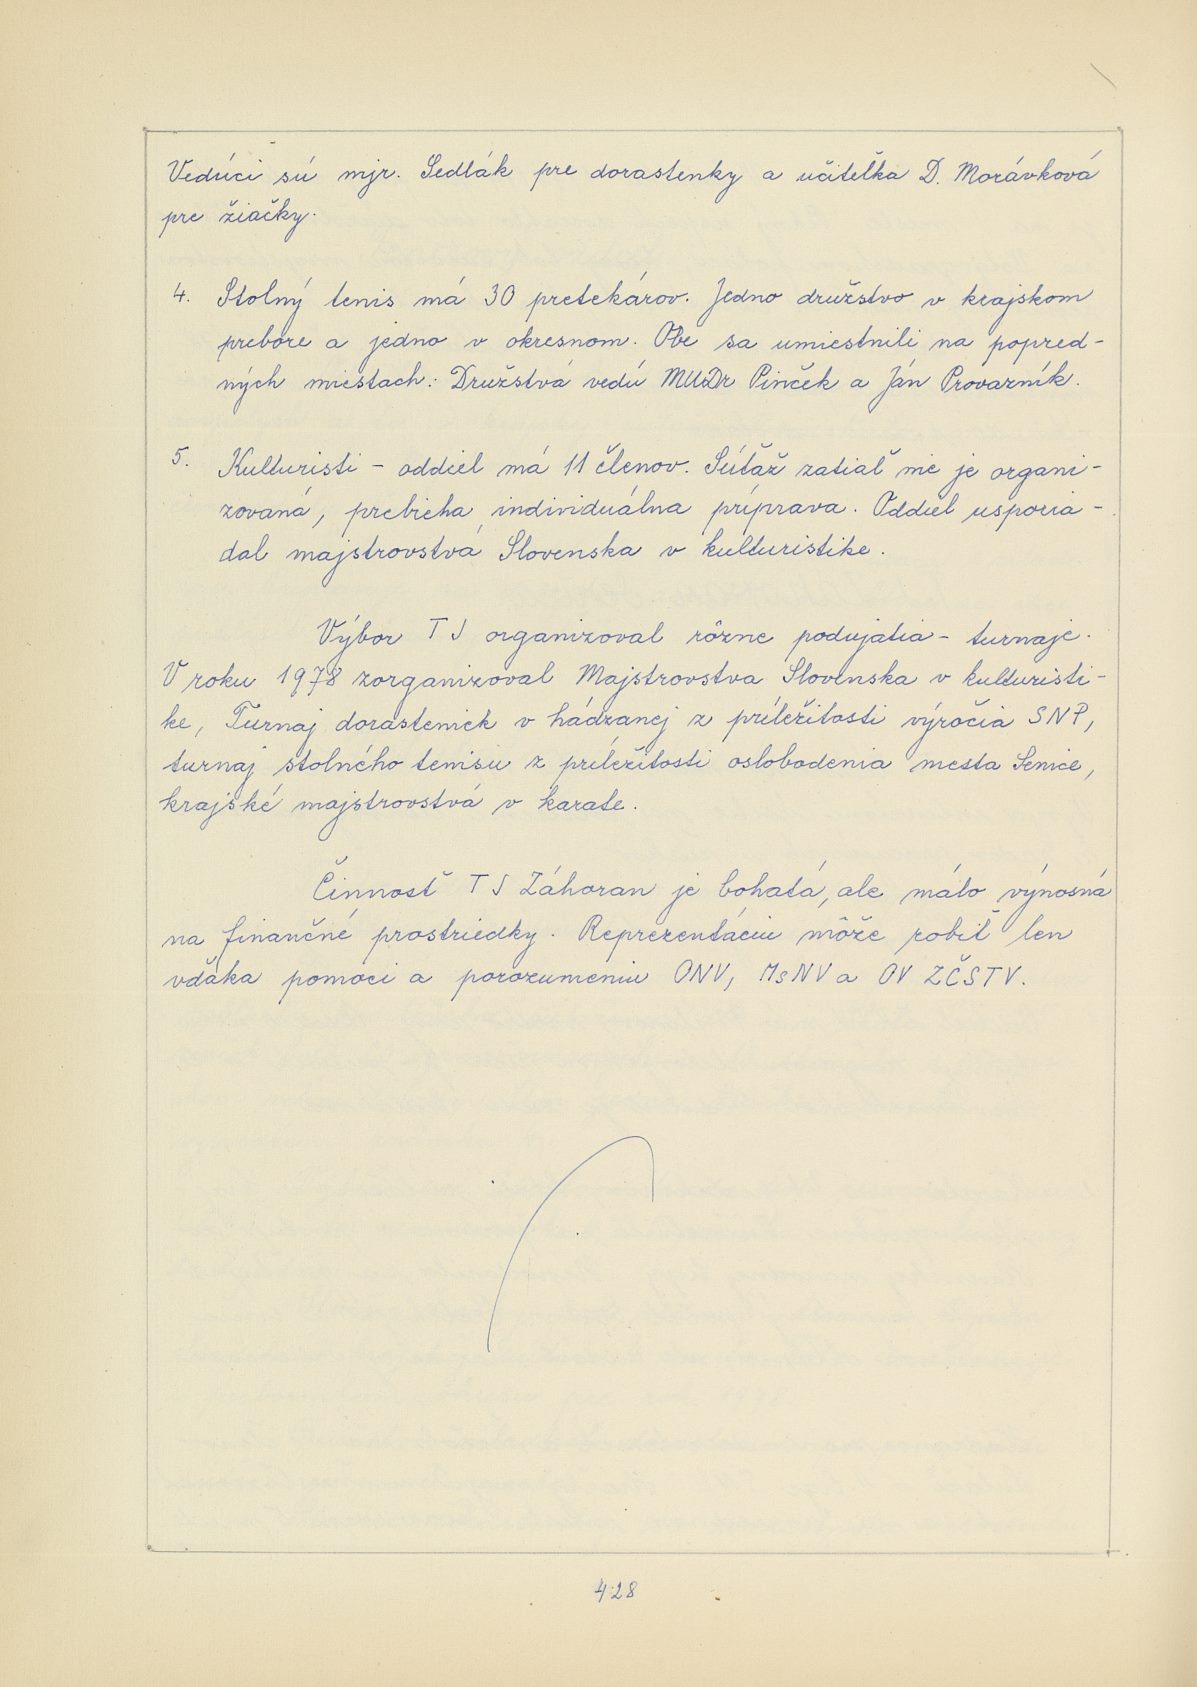 Vedúci sú mjr. Sedlák pre dorastenky a učiteľka D. Morávková
pre žiačky.
4. Stolný tenis má 30 pretekárov. Jedno družstvo v krajskom
prebore a jedno v okresnom. Obe sa umiestnili na popred-
ných miestach. Družstvá vedú MUDr Pinček a Ján Provazník.
5. Kulturisti - oddiel má 11 členov. Súťaž zatiaľ nie je organi-
zovaná, prebieha individuálna príprava. Oddiel usporia-
dal majstrovstvá Slovenska v kulturistike.
Výbor TJ organizoval rôzne podujatia - turnaje.
V roku 1978 zorganizoval Majstrovstva Slovenska v kulturisti-
ke, Turnaj dorasteniek v hádzanej z príležitosti výročia SNP,
turnaj stolného tenisu z príležitosti oslobodenia mesta Senice,
krajské majstrovstvá v karate.
Činnosť TJ Záhoran je bohatá, ale málo výnosná
na finančné prostriedky. Reprezentáciu môže robiť len
vďaka pomoci a porozumeniu ONV, MsNV a OV ZČSTV.
428